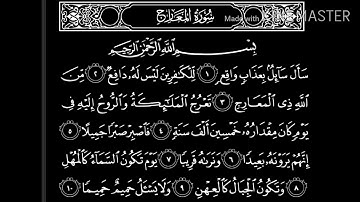 سُورَةُ المَعَارِجِ
Made with
KINEMASTER
بِسْمِ ٱللَّهِ ٱلرَّحْمَٰنِ ٱلرَّحِيمِ
سَأَلَ سَآئِلٌۢ بِعَذَابٍ وَاقِعٍ ١ لِّلْكَٰفِرِينَ لَيْسَ لَهُۥ دَافِعٌ ٢ مِّنَ
ٱللَّهِ ذِى ٱلْمَعَارِجِ ٣ تَعْرُجُ ٱلْمَلَٰٓئِكَةُ وَٱلرُّوحُ إِلَيْهِ فِى
يَوْمٍ كَانَ مِقْدَارُهُۥ خَمْسِينَ أَلْفَ سَنَةٍ ٤ فَٱصْبِرْ صَبْرًا جَمِيلًا ٥
إِنَّهُمْ يَرَوْنَهُۥ بَعِيدًا ٦ وَنَرَىٰهُ قَرِيبًا ٧ يَوْمَ تَكُونُ ٱلسَّمَآءُ كَٱلْمُهْلِ
٨ وَتَكُونُ ٱلْجِبَالُ كَٱلْعِهْنِ ٩ وَلَا يَسْـَٔلُ حَمِيمٌ حَمِيمًا ١٠